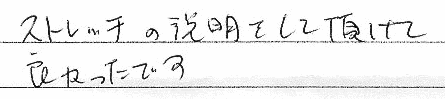 ストレッチの説明をして頂けて
良かったです